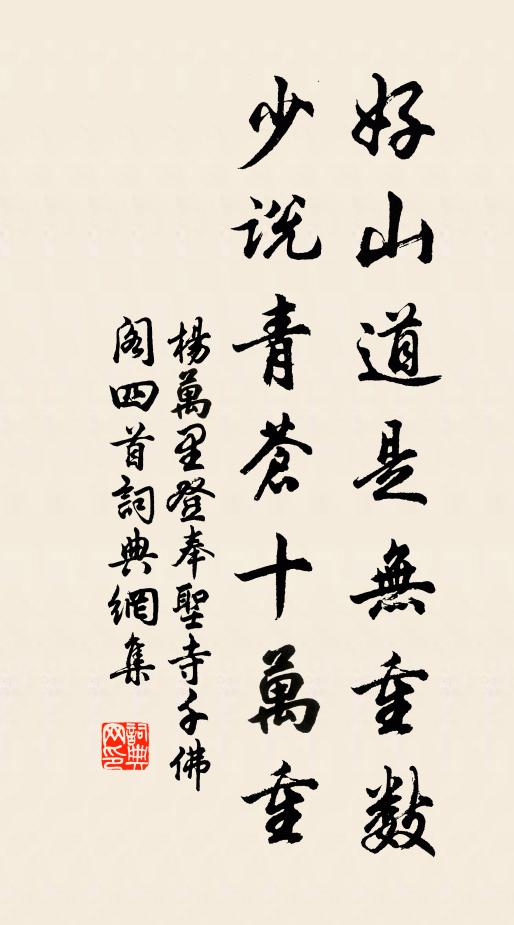 好山道是無重數
少説青蒼十萬重
楊萬里登奉聖寺千佛
閣四首詞典網集
詞典
网印